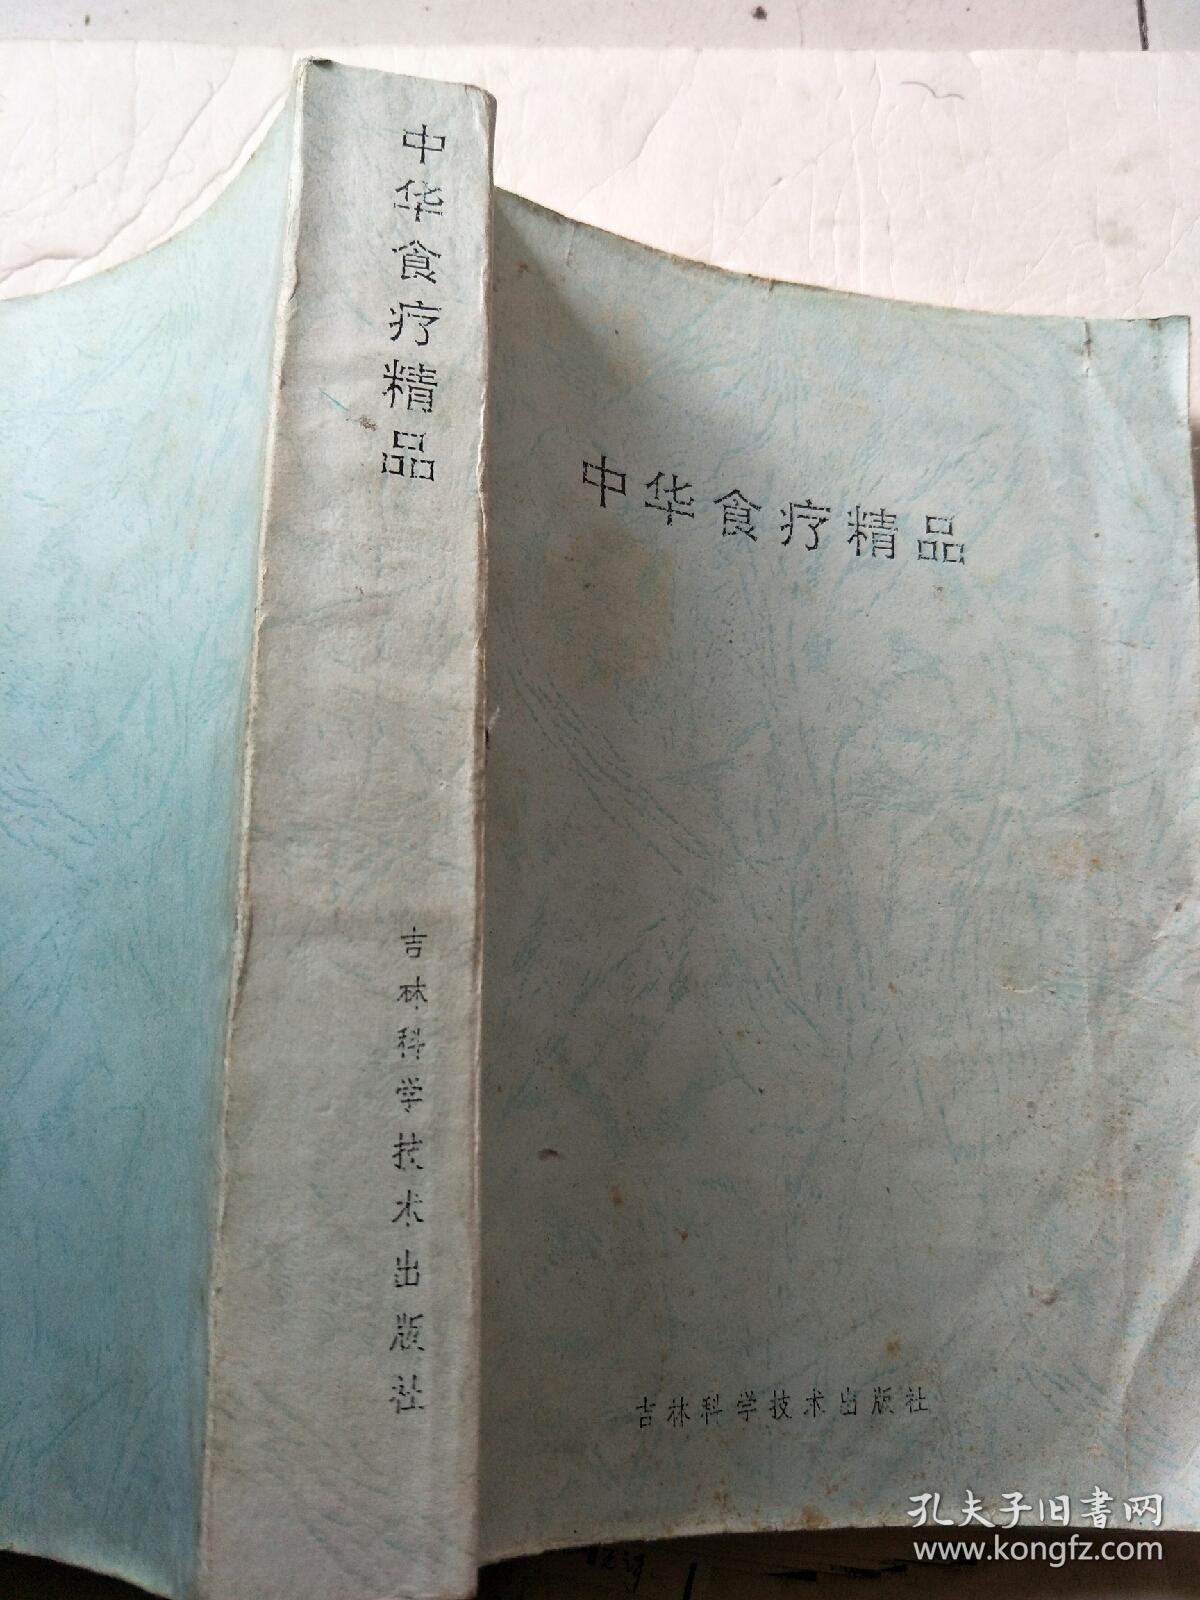 中华食疗精品
吉林科学技术出版社
中华食疗精品
吉林科学技术出版社
孔夫子旧书网
www.kongfz.com